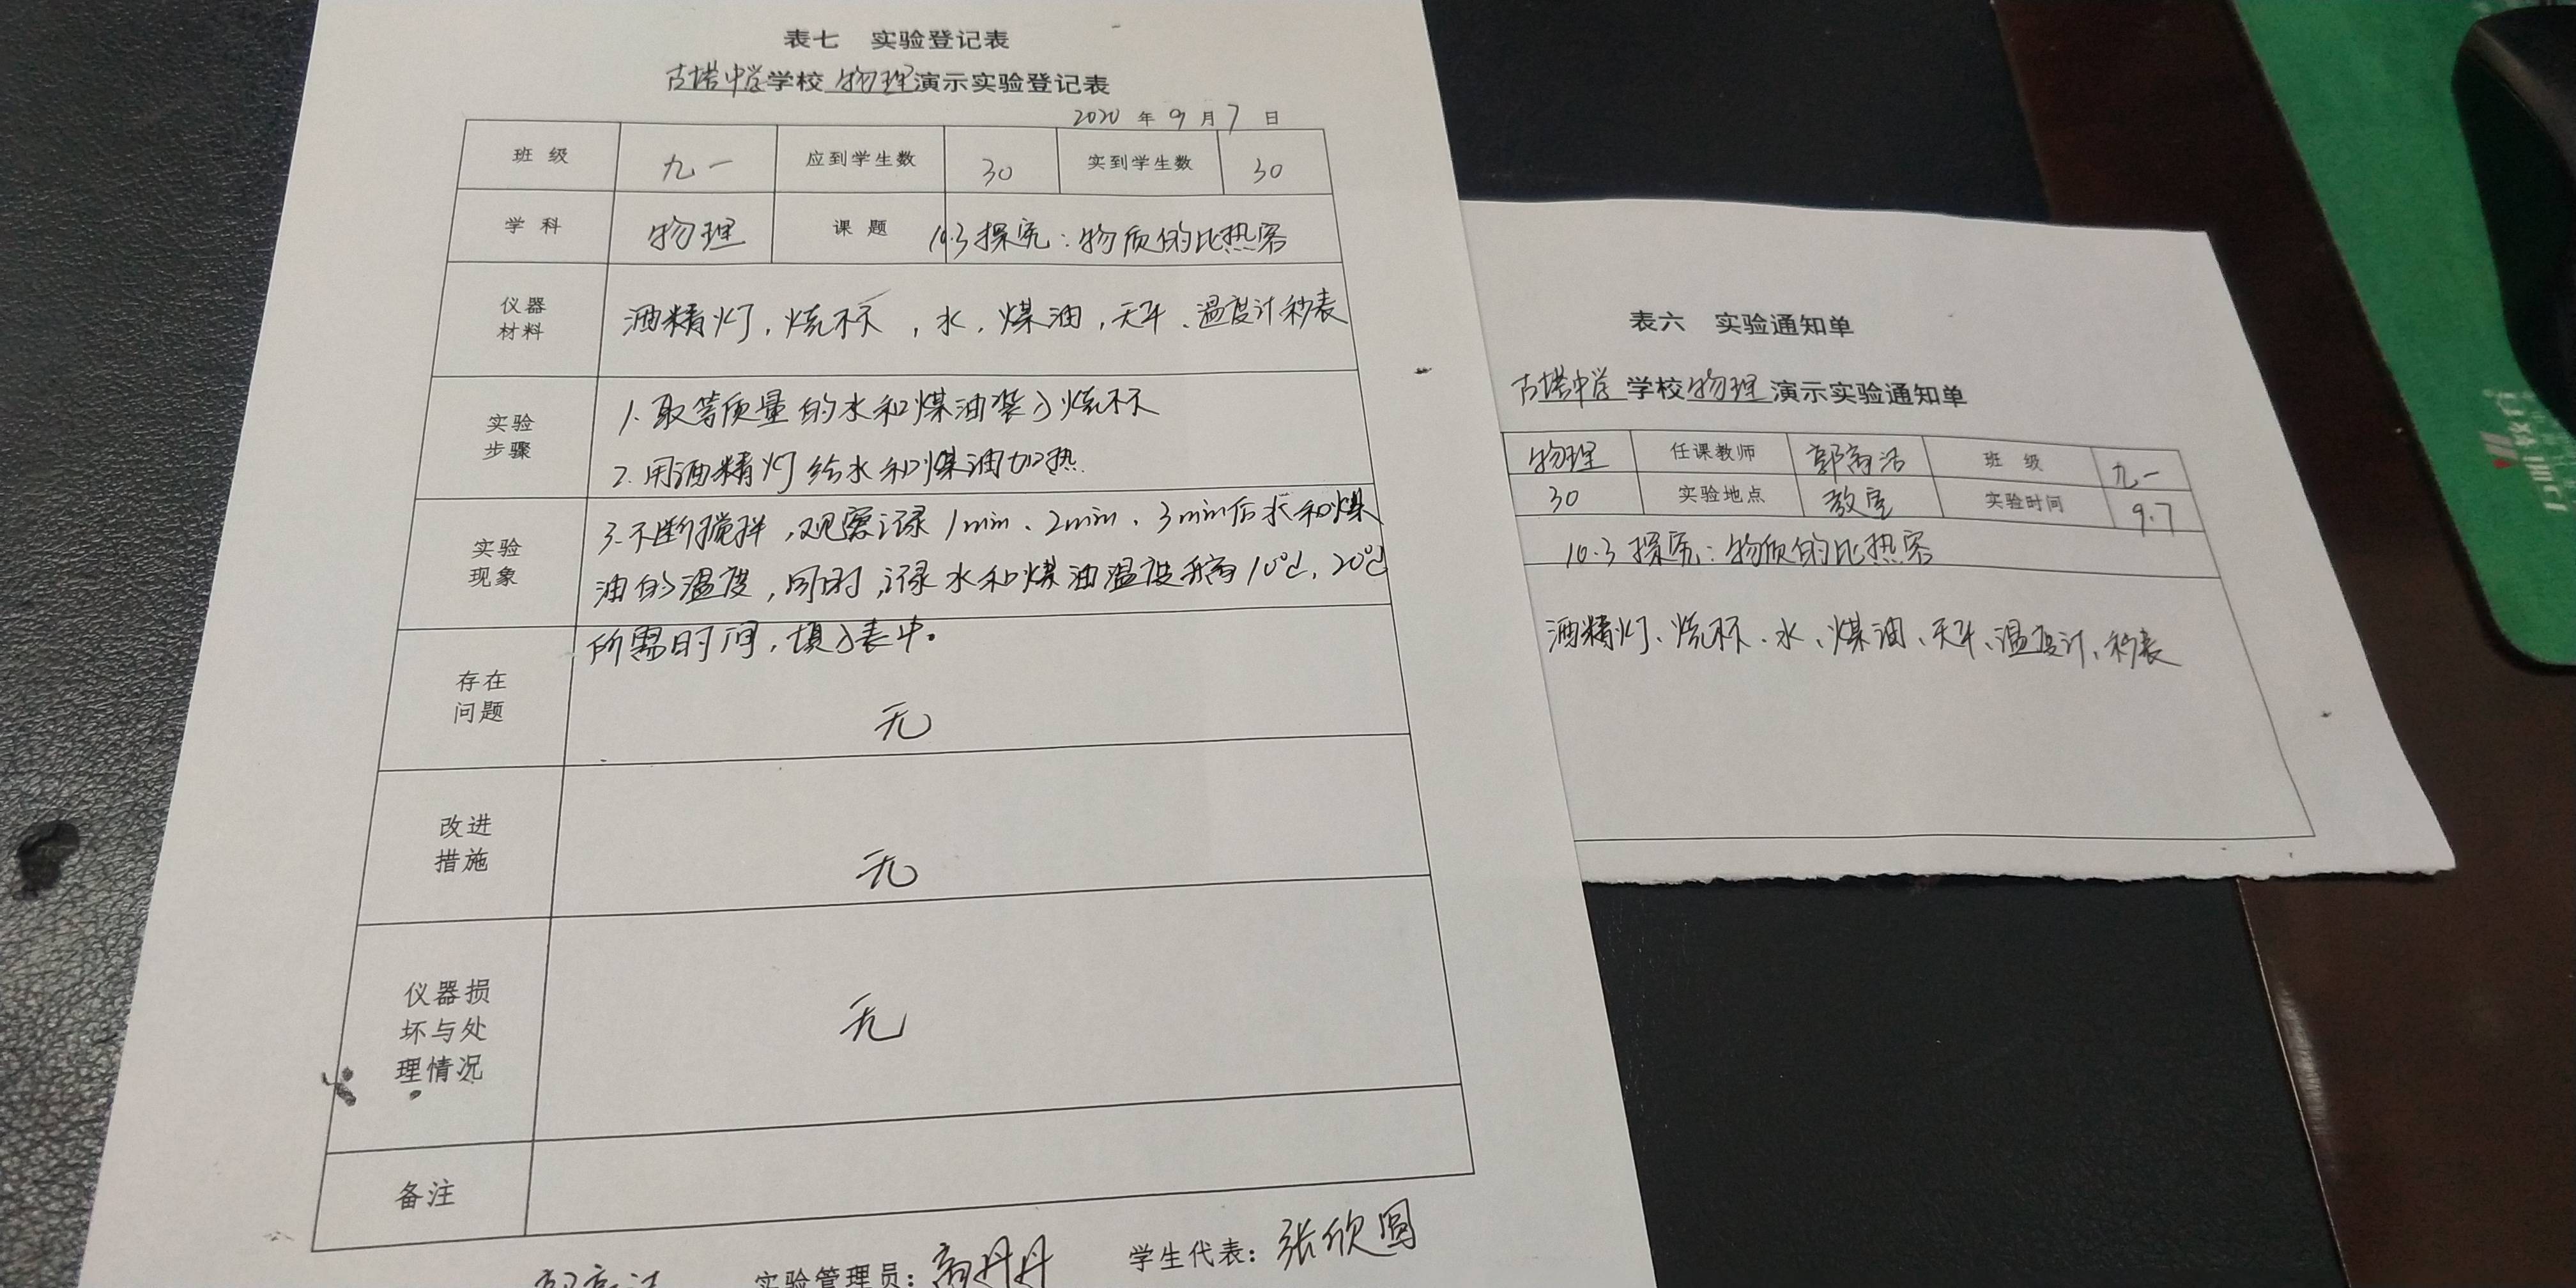 表七 实验登记表
古塔中学学校 物理 演示实验登记表
2020 年 9 月 7 日
班级 九一 应到学生数 30 实到学生数 30
学科 物理 课题 10.3探究:物质的比热容
仪器材料 酒精灯,烧杯,水,煤油,天平、温度计秒表
实验步骤 1.取等质量的水和煤油装入烧杯
2.用酒精灯给水和煤油加热.
实验现象 3.不断搅拌,观察记录1min、2min、3min后水和煤
油的温度,同时,记录水和煤油温度升高10℃,20℃
所需时间,填入表中。
存在问题 无
改进措施 无
仪器损坏与处理情况 无
备注
实验管理员:高丹丹 学生代表:张欣圆
表六 实验通知单
古塔中学 学校 物理 演示实验通知单
物理 任课教师 班级 九一
30 实验地点 教室 实验时间 9.7
10.3探究:物质的比热容
酒精灯、烧杯、水、煤油、天平、温度计、秒表